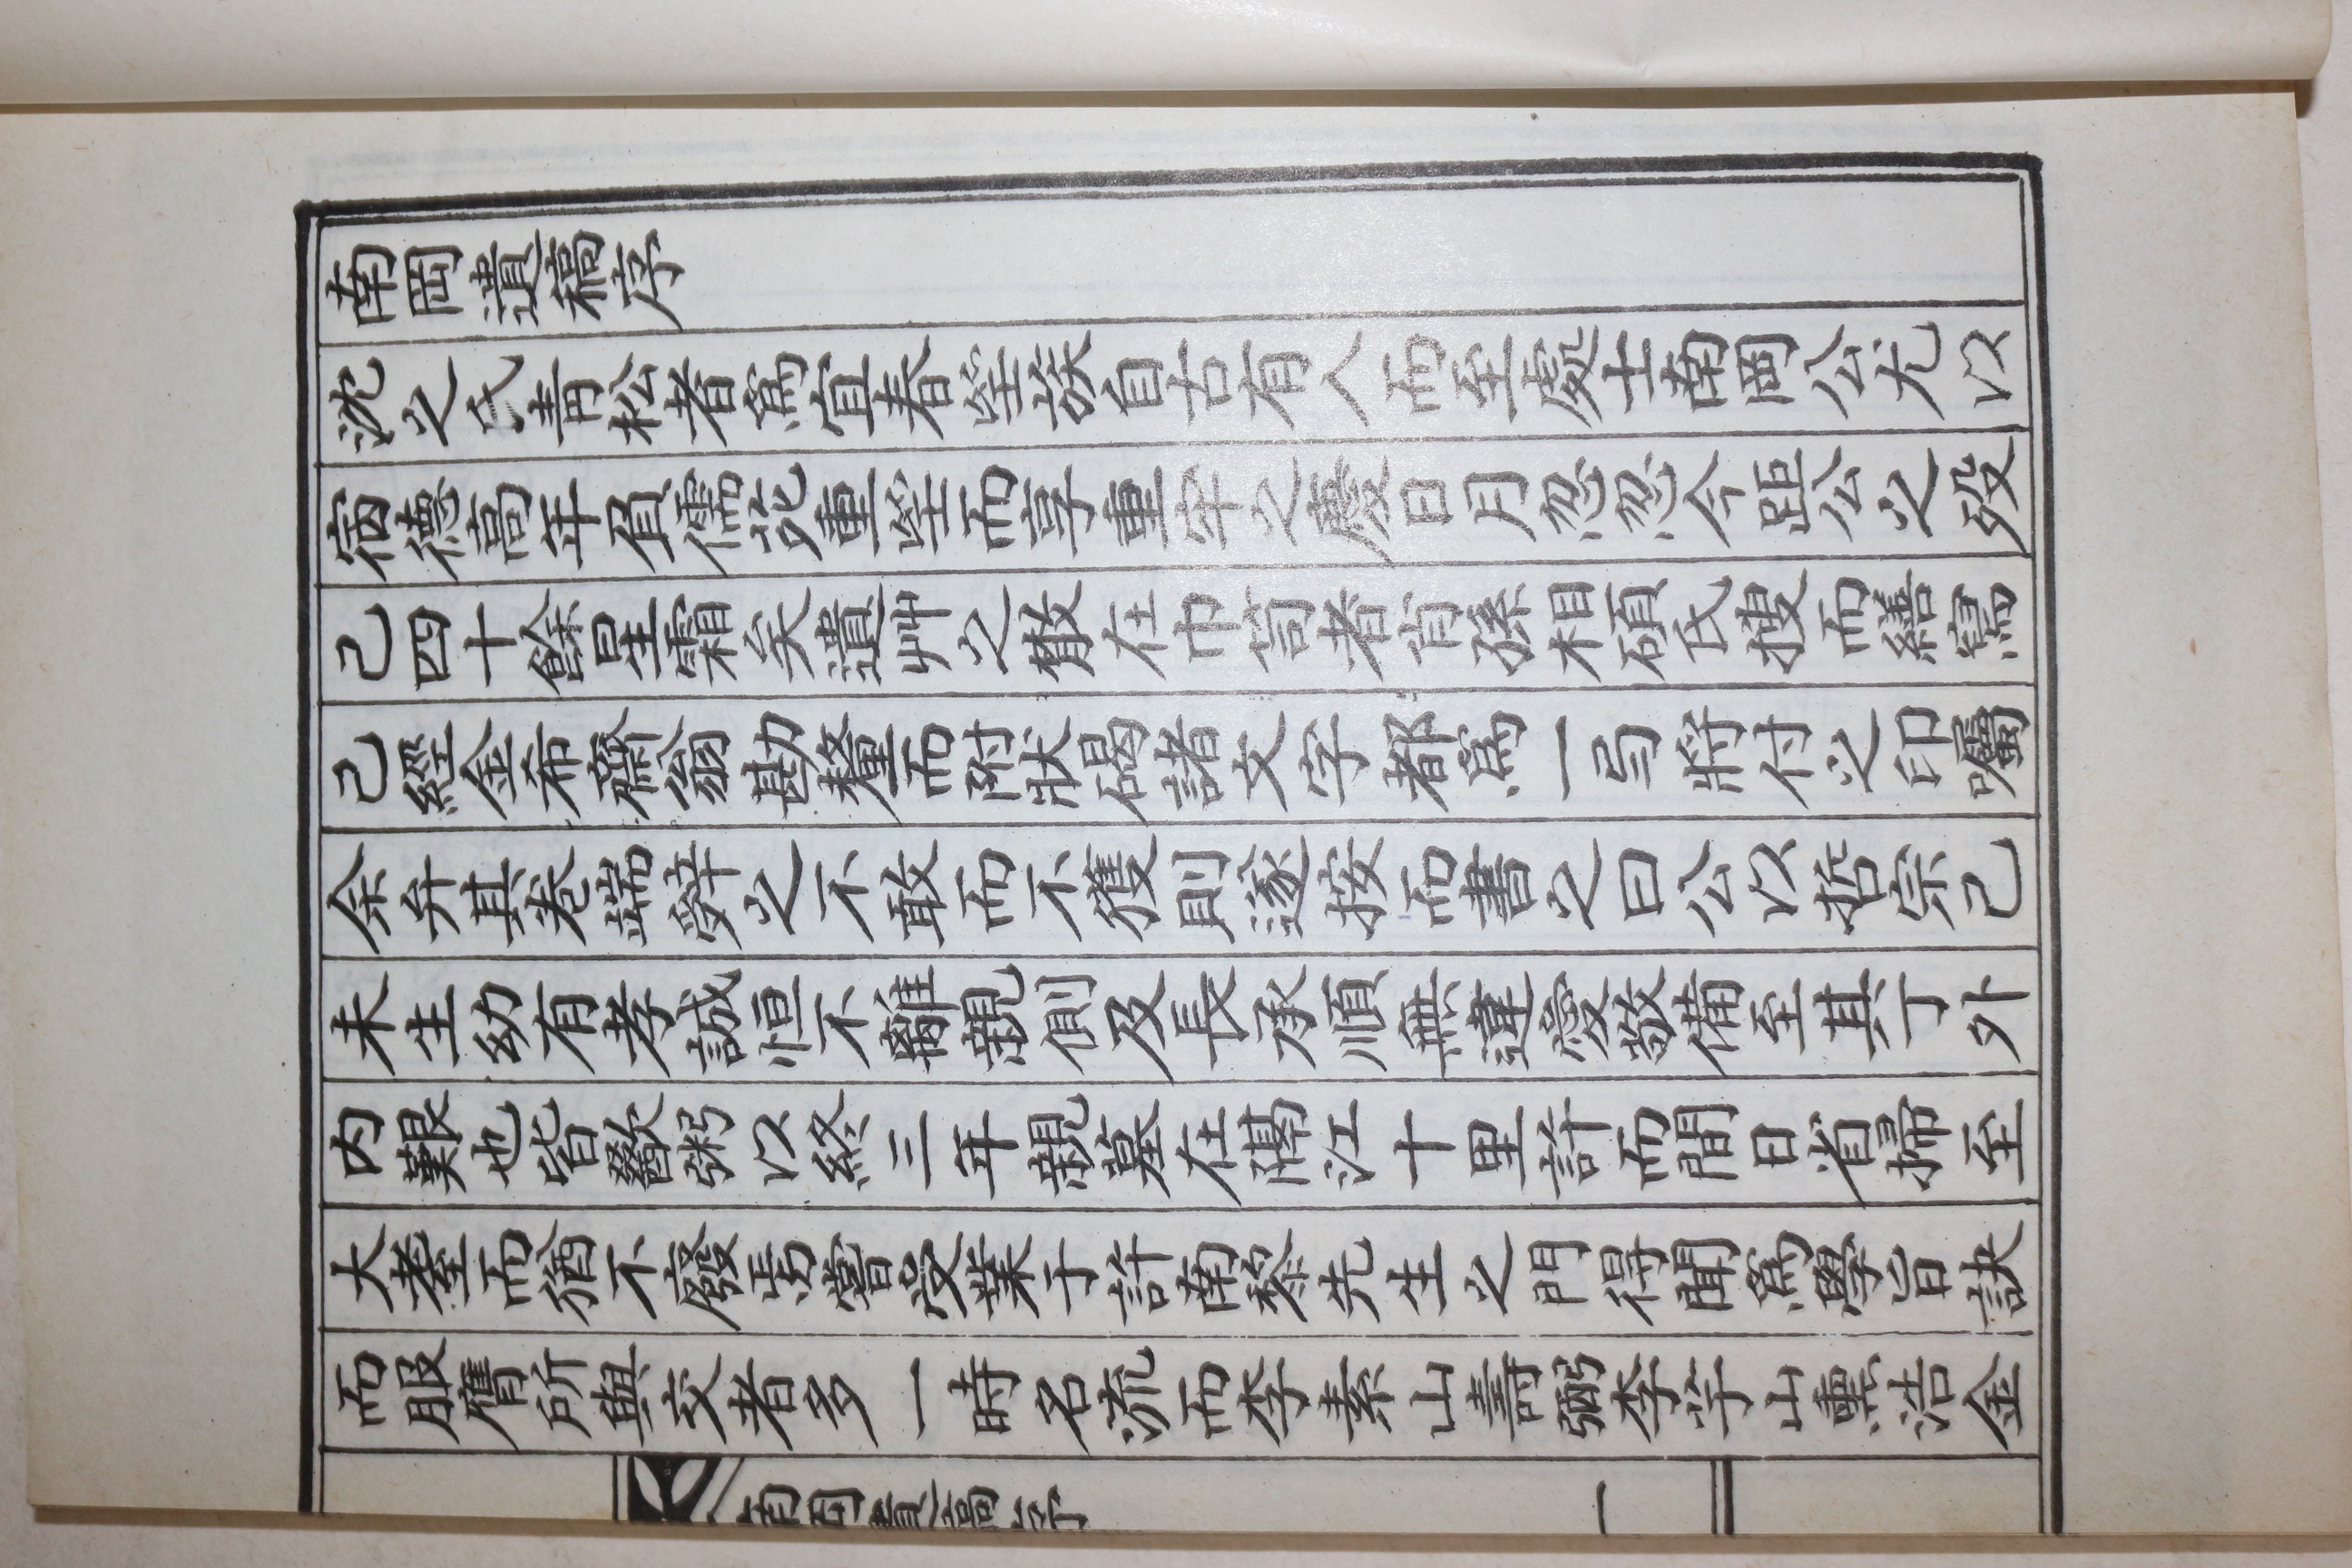 南岡遺稿序
沈之氏靑松者爲宜春望族自古有人而至處士南岡公尤以
宿德高年負儒苑重望而享重牢之慶日月忽忽今距公之歿
已四十餘星霜矣遺艸之散在巾笥者肖孫相碩氏搜而繕寫
已經金希齋翁勘釐而附狀碣諸文字都爲一弓將付之印囑
余弁其卷端辭之不敢而不獲則遂按而書之曰公以哲宗己
未生幼有孝誠恒不離親側及長承順無違愛敬備至其丁外
内艱也皆歠粥以終三年親墓在隔江十里許而間日省掃至
大耋而猶不廢焉嘗受業于許南黎先生之門得聞爲學旨訣
而服膺所與交者多一時名流而李素山壽弼李芋山熏浩金
南岡遺稿序
一